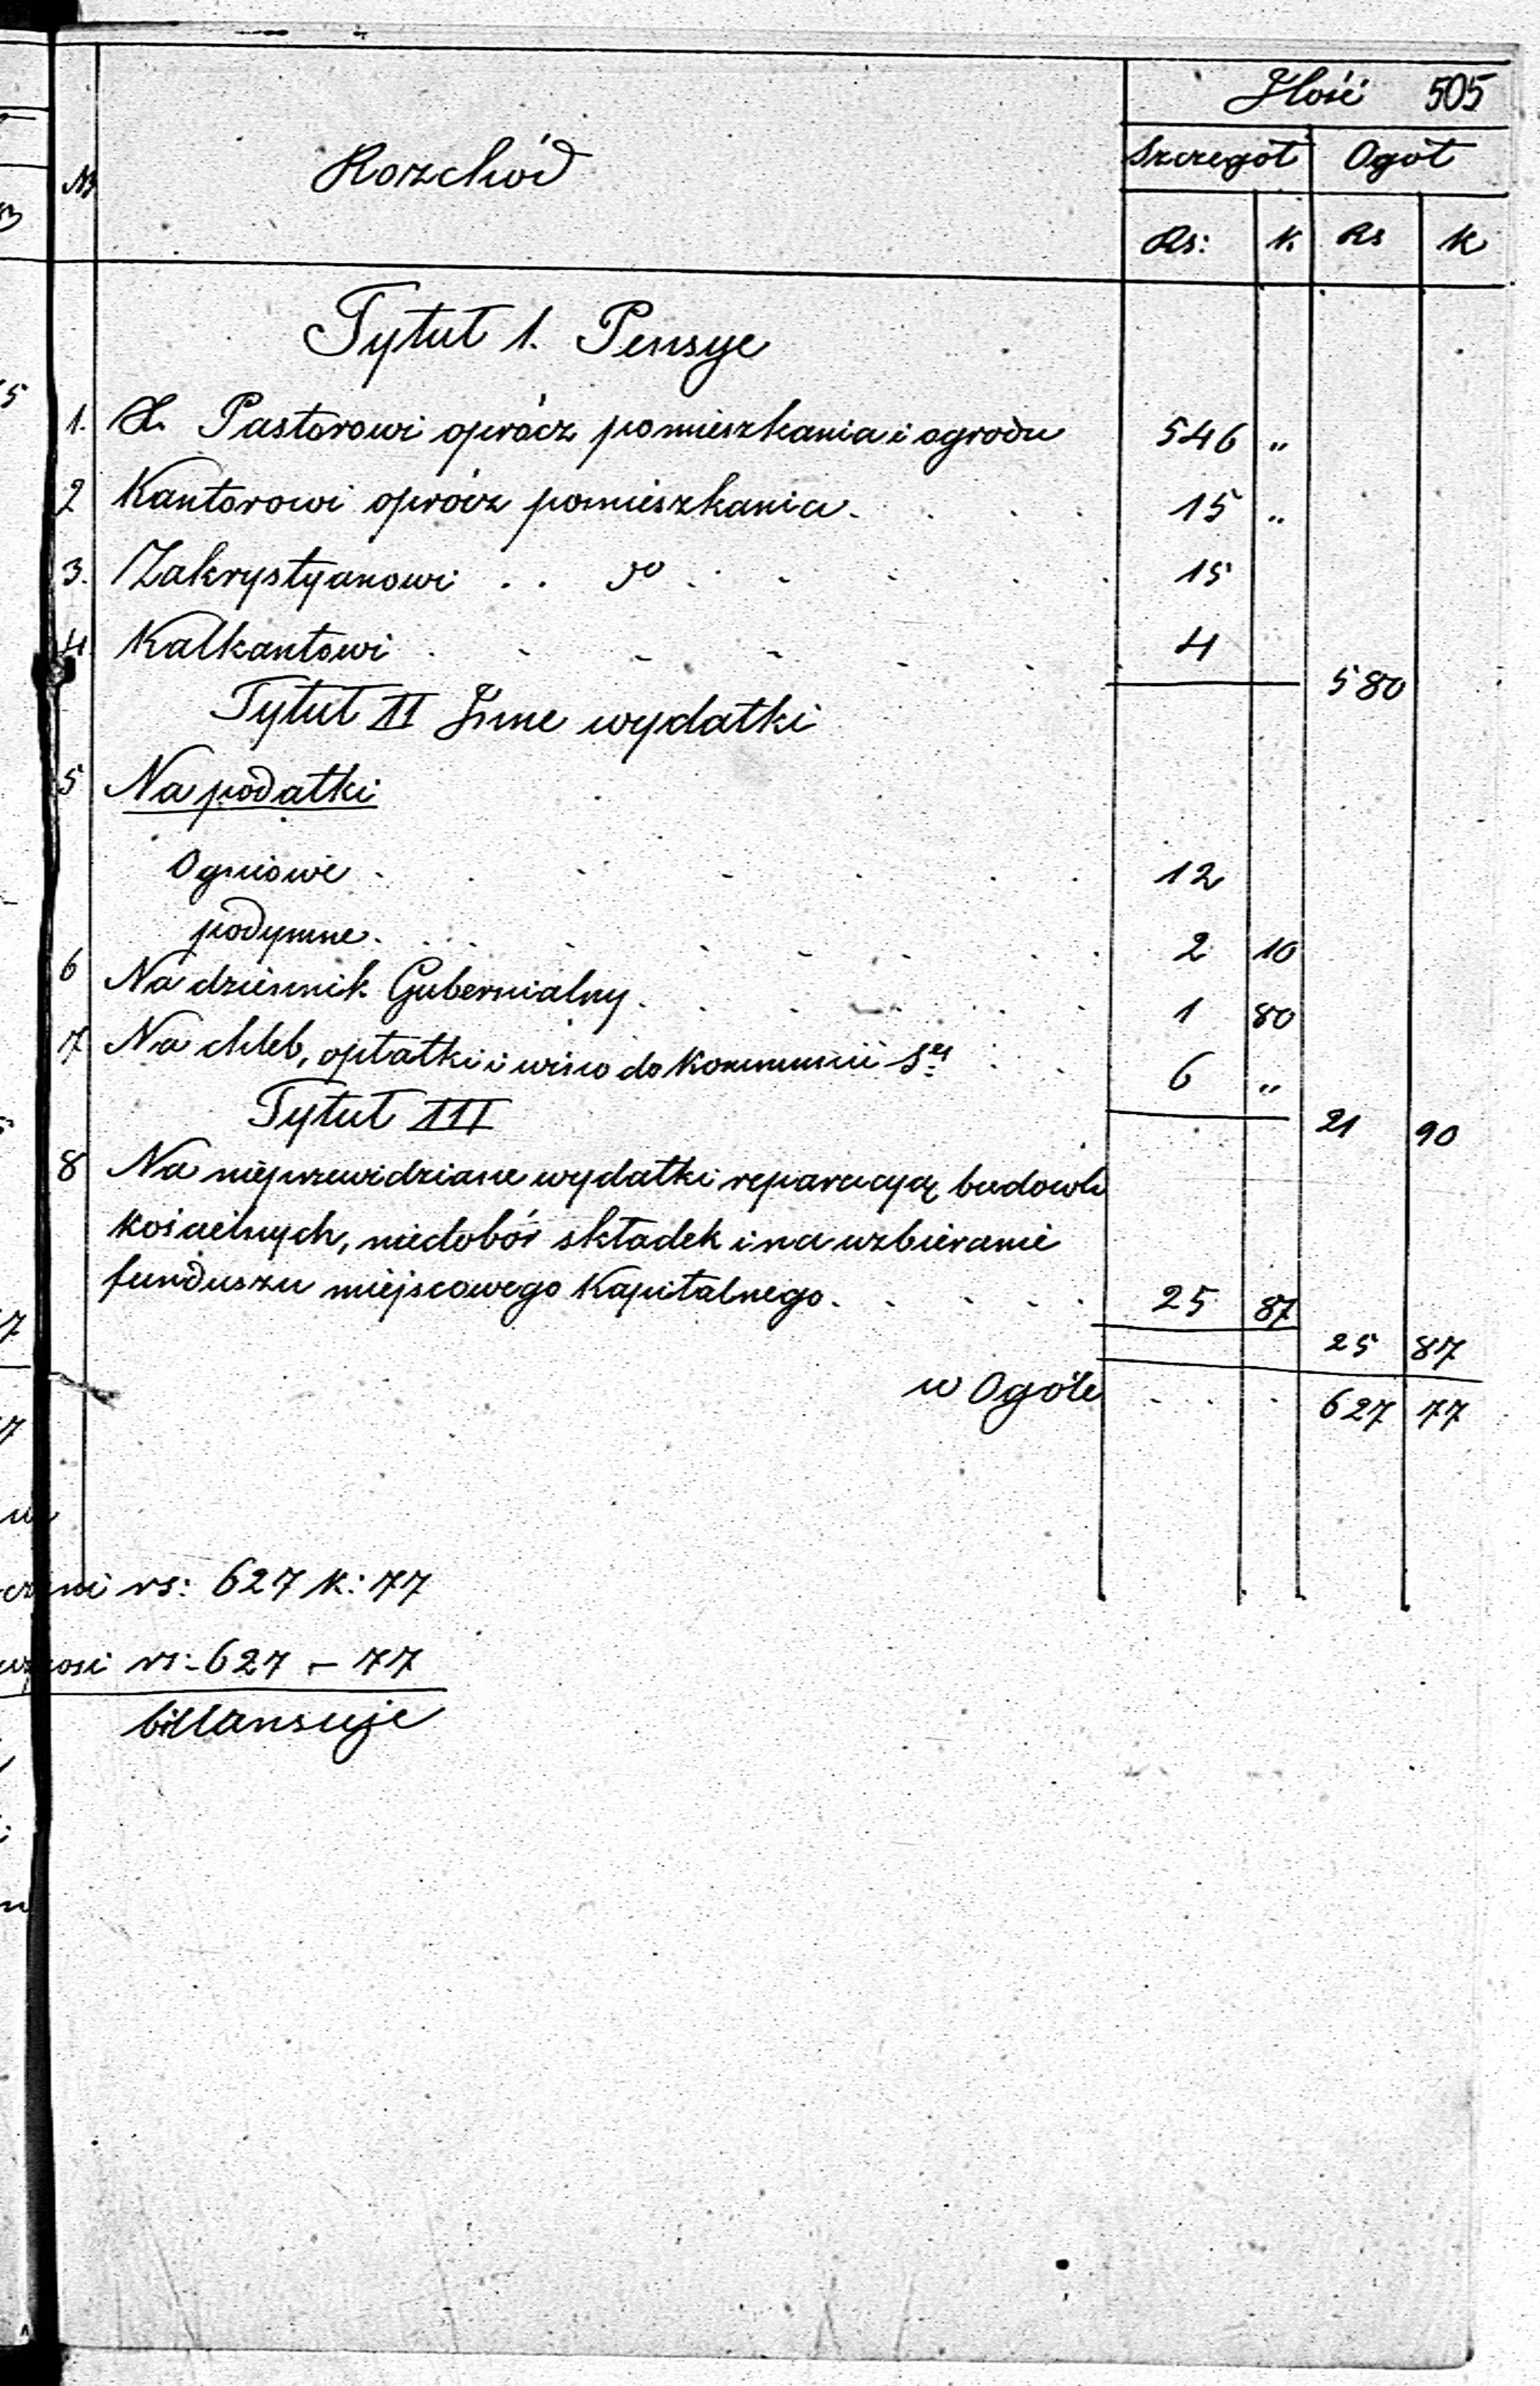 Ilość 505
№ Rozchód Szczegół Ogół
Rs: K. Rs K
Tytuł 1. Pensye
1. X. Pastorowi oprócz pomieszkania i ogrodu 546 „
2 Kantorowi oprócz pomieszkania . . . . 15 „
3. Zakrystyanowi . . do . . . . . . 15
4 Kalkantowi . . . . . . 4
580
Tytuł II Inne wydatki
5 Na podatki
Ogniowe . . . . . . . 12
podymne . . . . . . . 2 10
6 Na dziennik Gubernialny . . . . . 1 80
7 Na chleb, opłatki i wino do Kommunii Sej . . 6 „
21 90
Tytuł III
8 Na nieprzewidziane wydatki reparacyą budowli
kościelnych, niedobór składek i na uzbieranie
funduszu miejscowego Kapitalnego . . . . . 25 87
25 87
w Ogóle . . . . 627 77
rs: 627 k: 77
rs: 627 – 77
billansuje